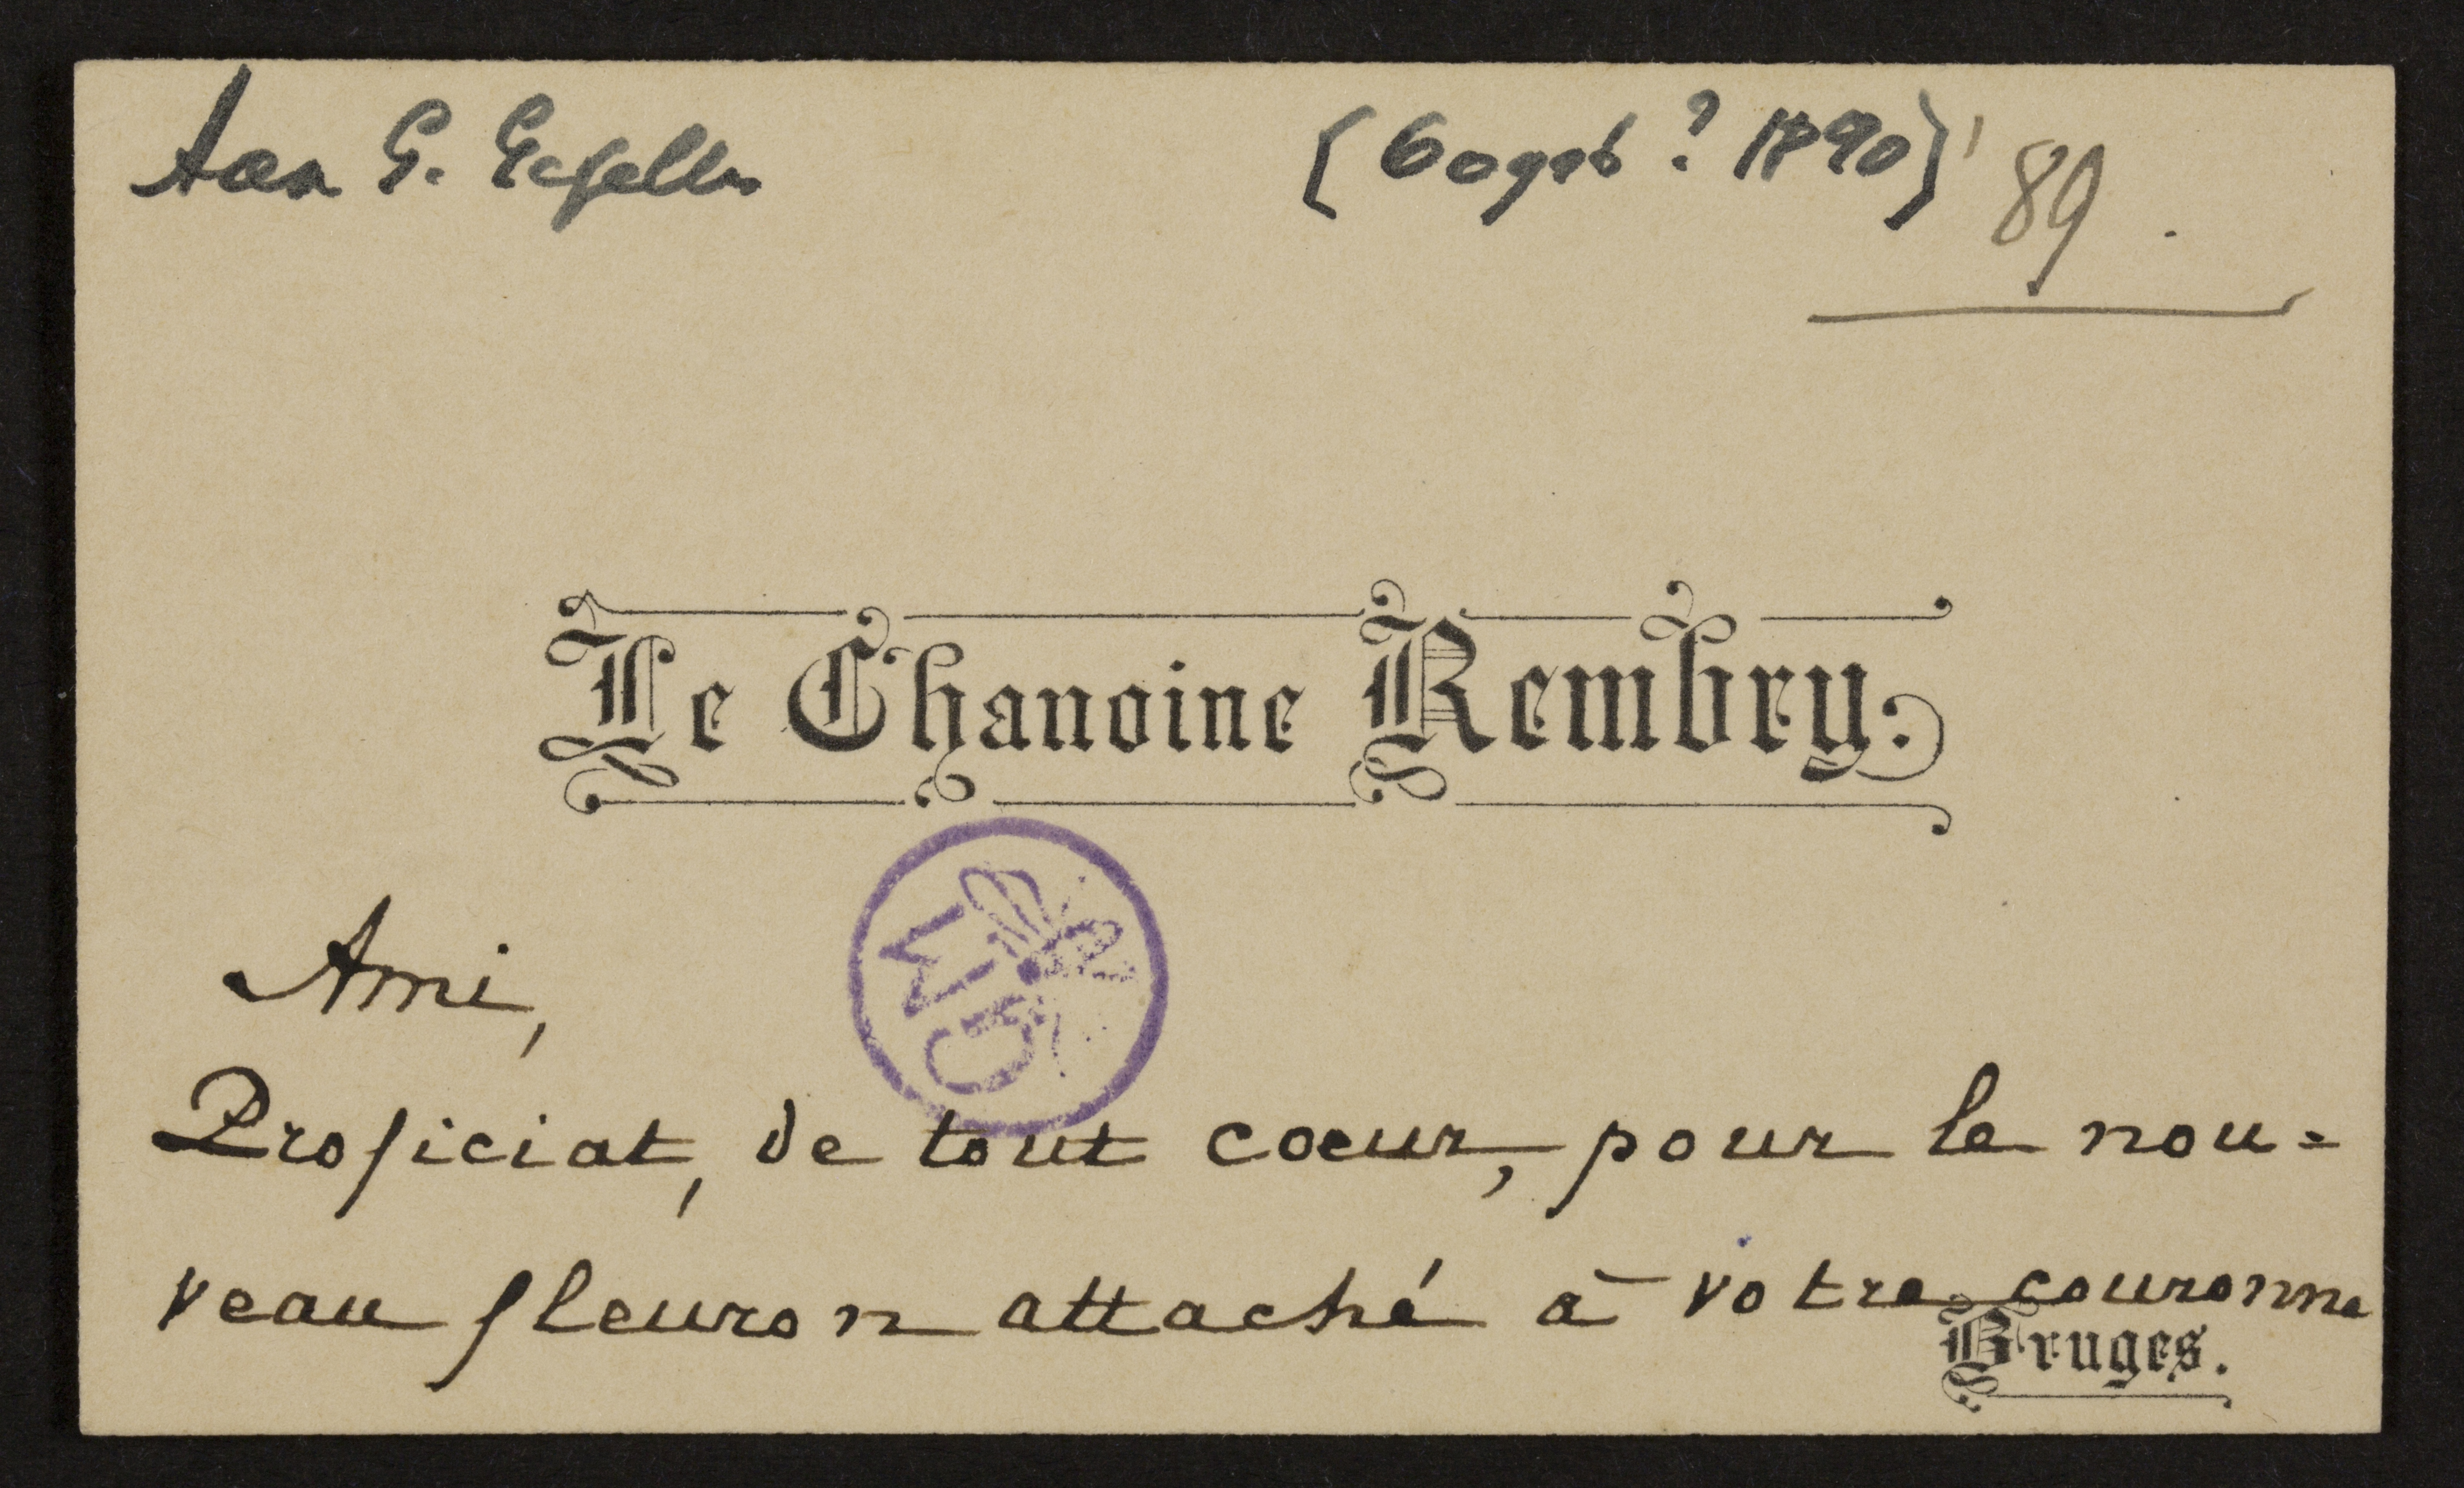 Aan G. Gezelle
[Oogst? 1890]
'89.
Le Chanoine Rembry.
Ami,
Proficiat, de tout cœur, pour le nou=
veau fleuron attaché à votre couronne
Bruges.